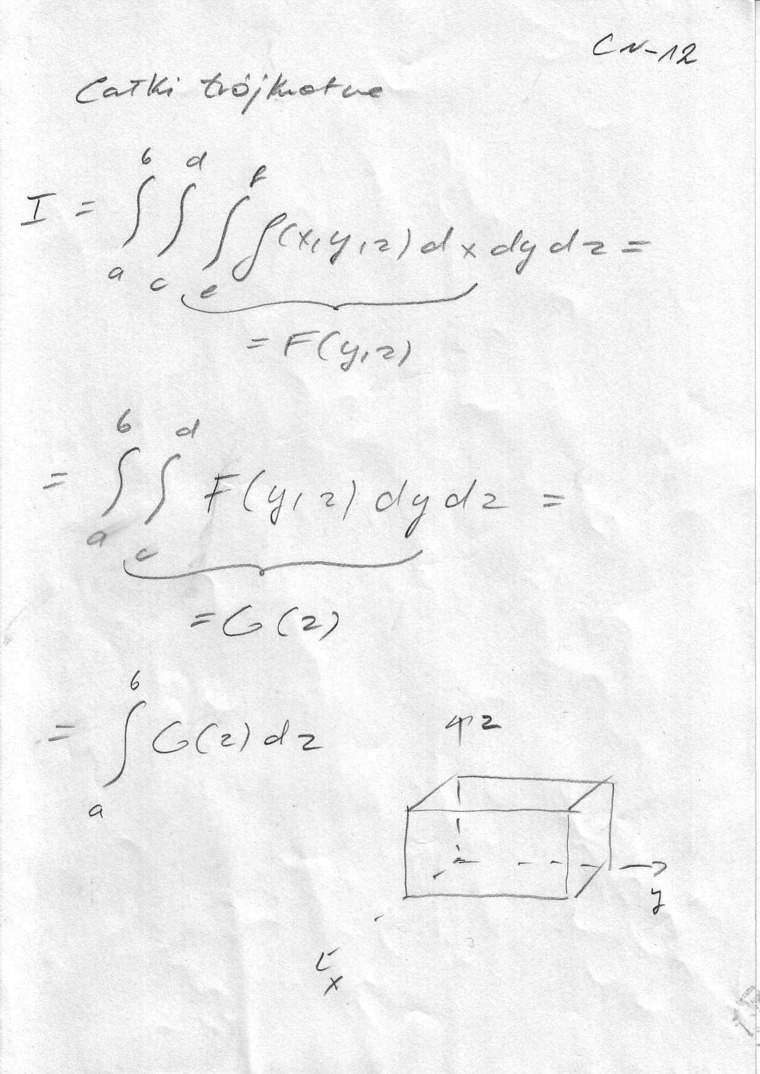 CN-12
Całki trójkrotne
I = ∫_a^b ∫_c^d ∫_e^f f(x,y,z) dx dy dz =
= F(y,z)
= ∫_a^b ∫_c^d F(y,z) dy dz =
= G(z)
= ∫_a^b G(z) dz
z
y
x